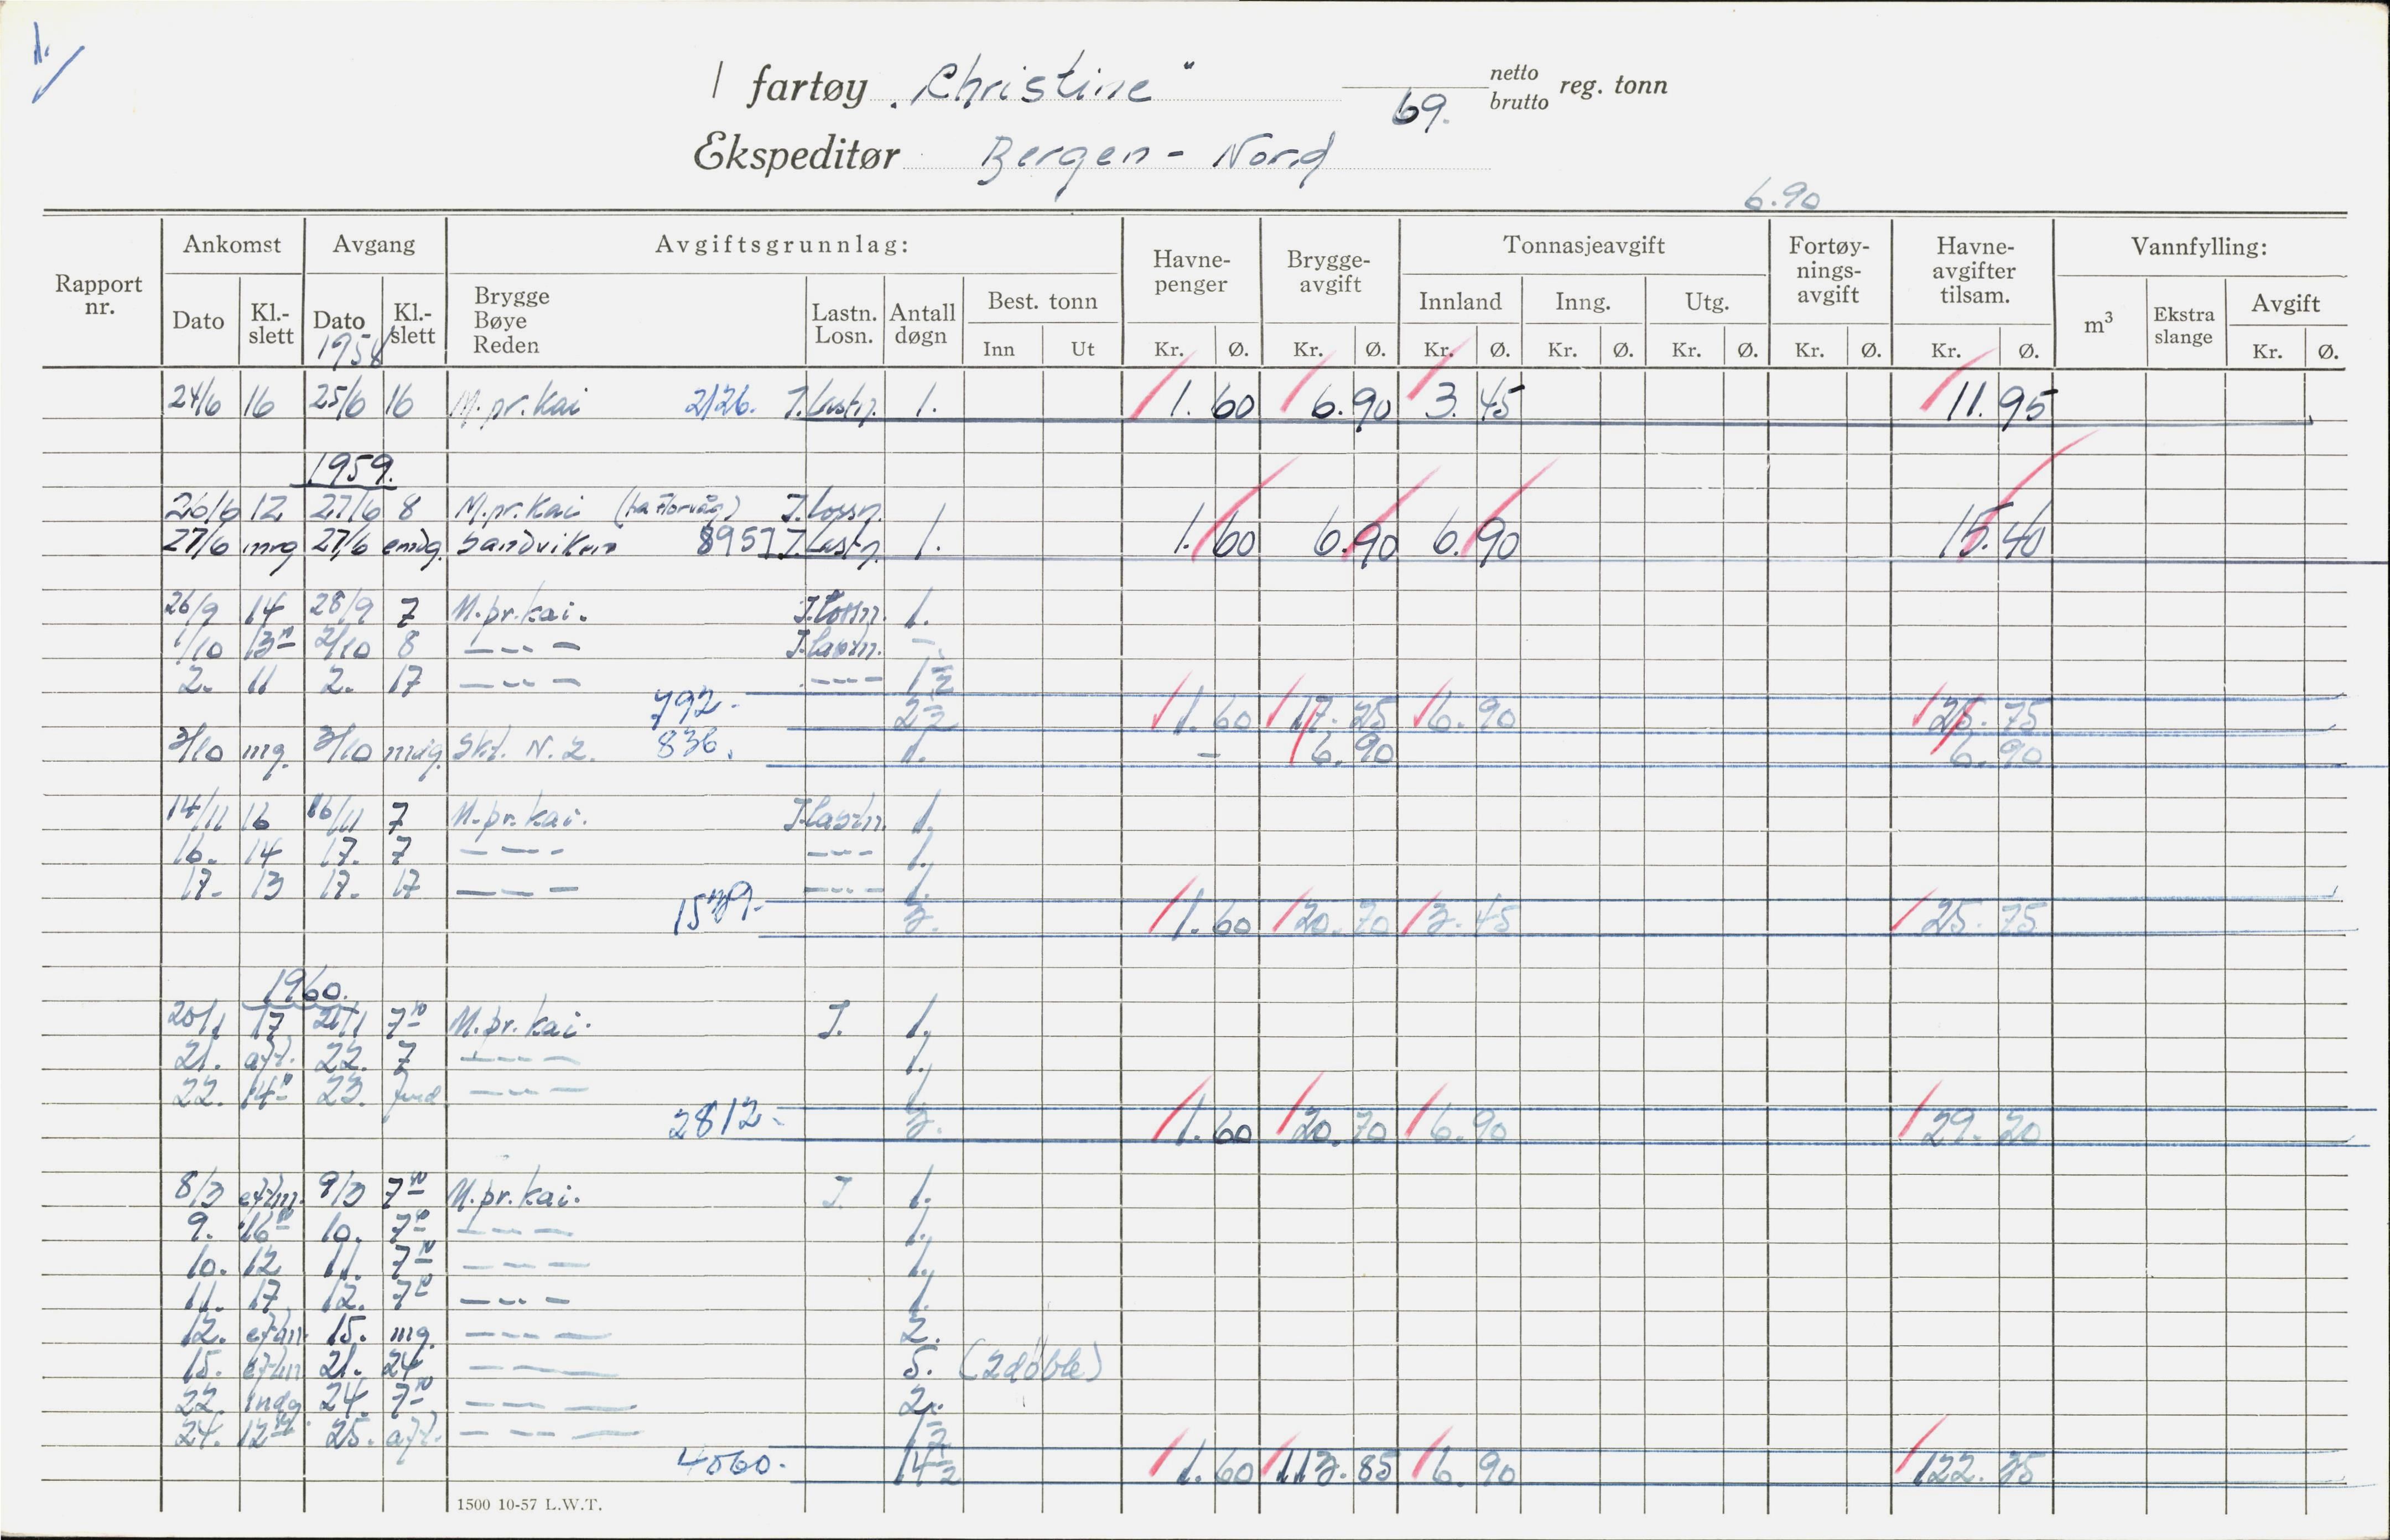 1.
/ fartøy „Christine“ 69. netto brutto reg. tonn
Ekspeditør Bergen - Nord
6.90
Rapport nr. Ankomst Avgang Avgiftsgrunnlag: Havne-penger Brygge-avgift Tonnasjeavgift Fortøy-nings-avgift Havne-avgifter tilsam. Vannfylling:
Dato Kl.-slett Dato Kl.-slett Brygge Bøye Reden Lastn. Losn. Antall døgn Best. tonn Innland Inng. Utg. m³ Ekstra slange Avgift
1958 Inn Ut Kr. Ø. Kr. Ø. Kr. Ø. Kr. Ø. Kr. Ø. Kr. Ø. Kr. Ø. Kr. Ø.
24/6 16 25/6 16 M.pr.kai 2126. I.Lastn. 1. 1.60 6.90 3.45 11.95
1959.
26/6 12 27/6 8 M.pr.kai I.Lossn.
27/6 mrg 27/6 emdg. Sandviken 8957 I.Lastn. 1. 1.60 6.90 6.90 15.40
26/9 14 28/9 7 M.pr.kai. I.Lossn. 1.
1/10 13 2/10 8 — „ — I.Lastn. -
2. 11 2. 17 — „ — — „ — 1½
792. 2½ 1.60 17.25 6.90 25.75
3/10 mg. 3/10 mdg. Skt. N. 2. 836. 1. - 6.90 6.90
14/11 16 16/11 7 M.pr.kai. I.Lastn. 1.
16. 14 17. 7 — „ — — „ — 1.
17. 13 17. 17 — „ — — „ — 1.
3. 1.60 20.70 3.45 25.75
1960.
20/1 17 21/1 7¹⁰ M.pr.kai. I. 1.
21. aft. 22. 7 — „ — 1.
22. 14 23. — „ — 1.
2812. 3. 1.60 20.70 6.90 29.20
8/3 eftm. 9/3 7¹⁰ M.pr.kai. I. 1.
9. 16¹⁰ 10. 7¹⁰ — „ — 1.
10. 12 11. 7¹⁰ — „ — 1.
11. 17 12. 7¹⁰ — „ — 1.
12. eftm. 15. mg. — „ — 2.
15. eftm 21. 24 — „ — 5. (2 døble)
22. mdg 24. 7¹⁰ — „ — 2.
24. 12 25. aft. — „ — ½
4060. 14½ 1.60 113.85 6.90 122.35
1500 10-57 L.W.T.